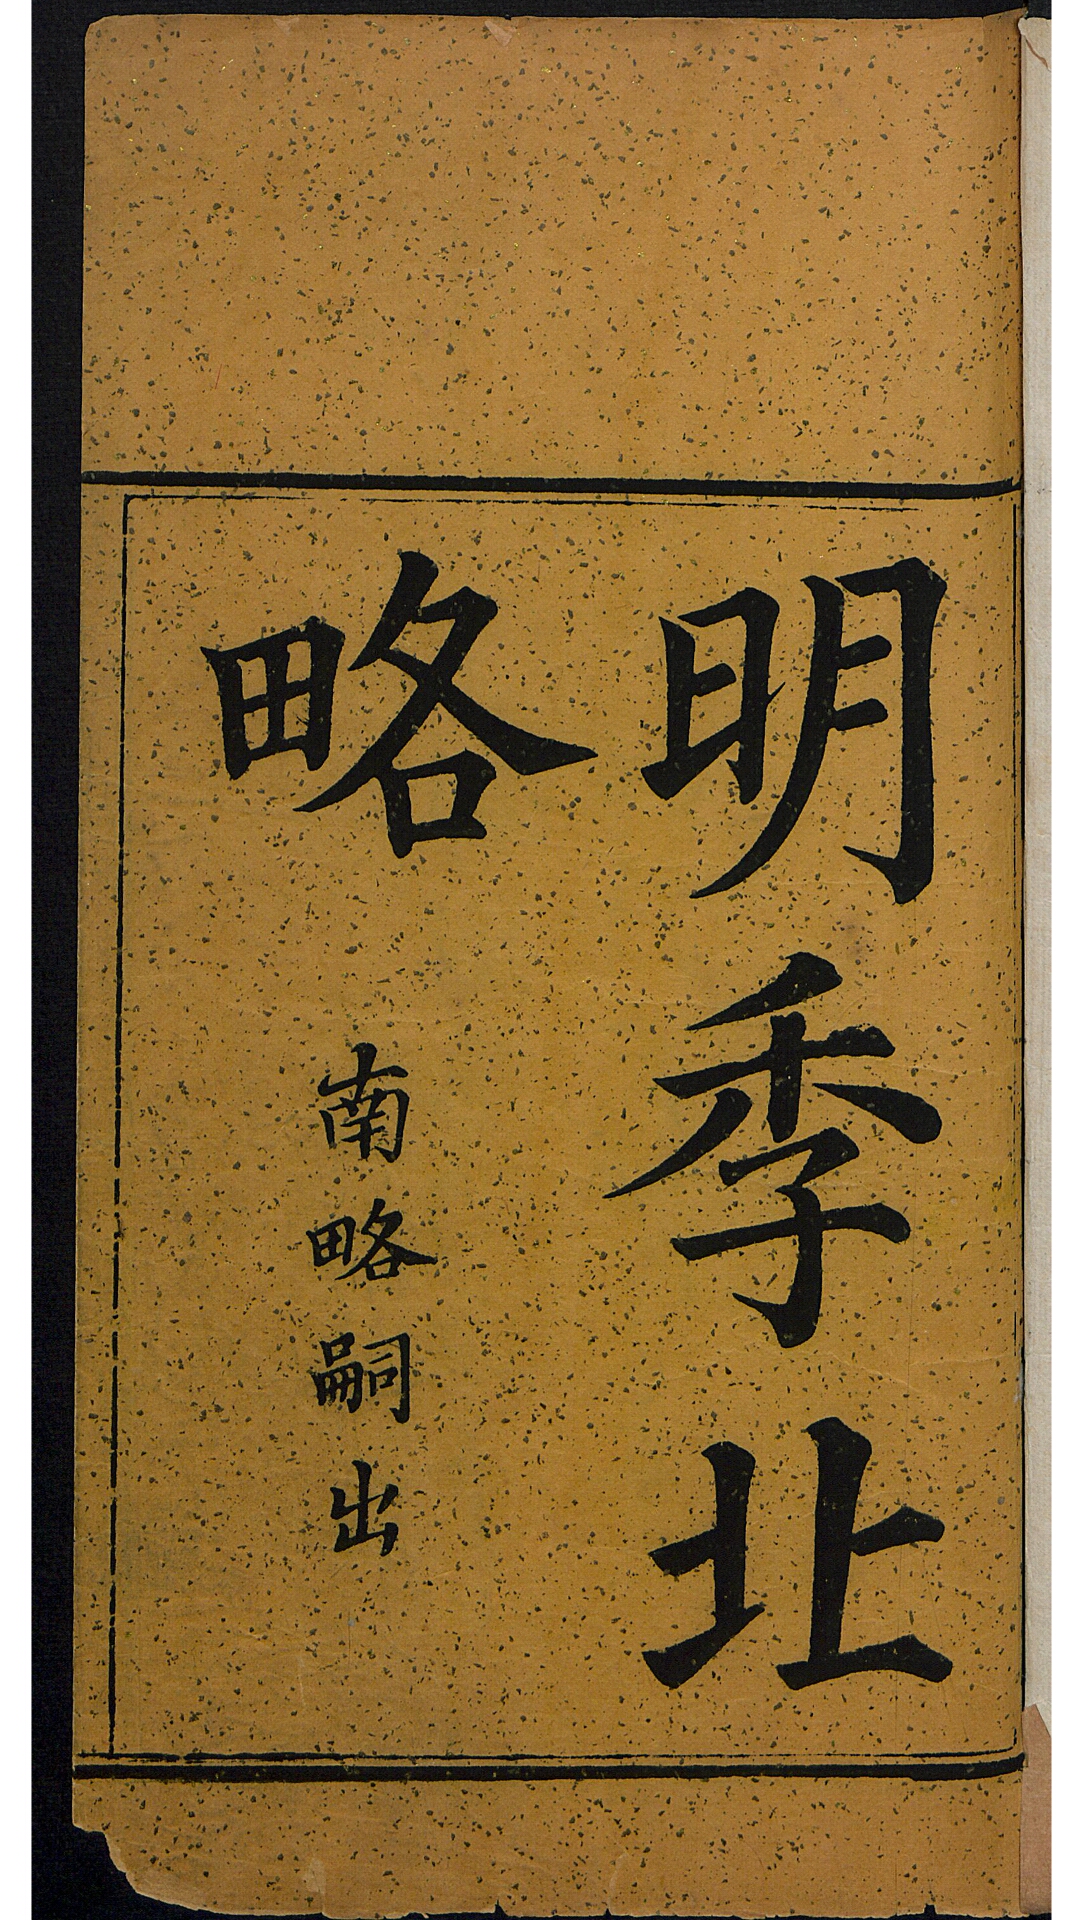 明季北
略
南略嗣出